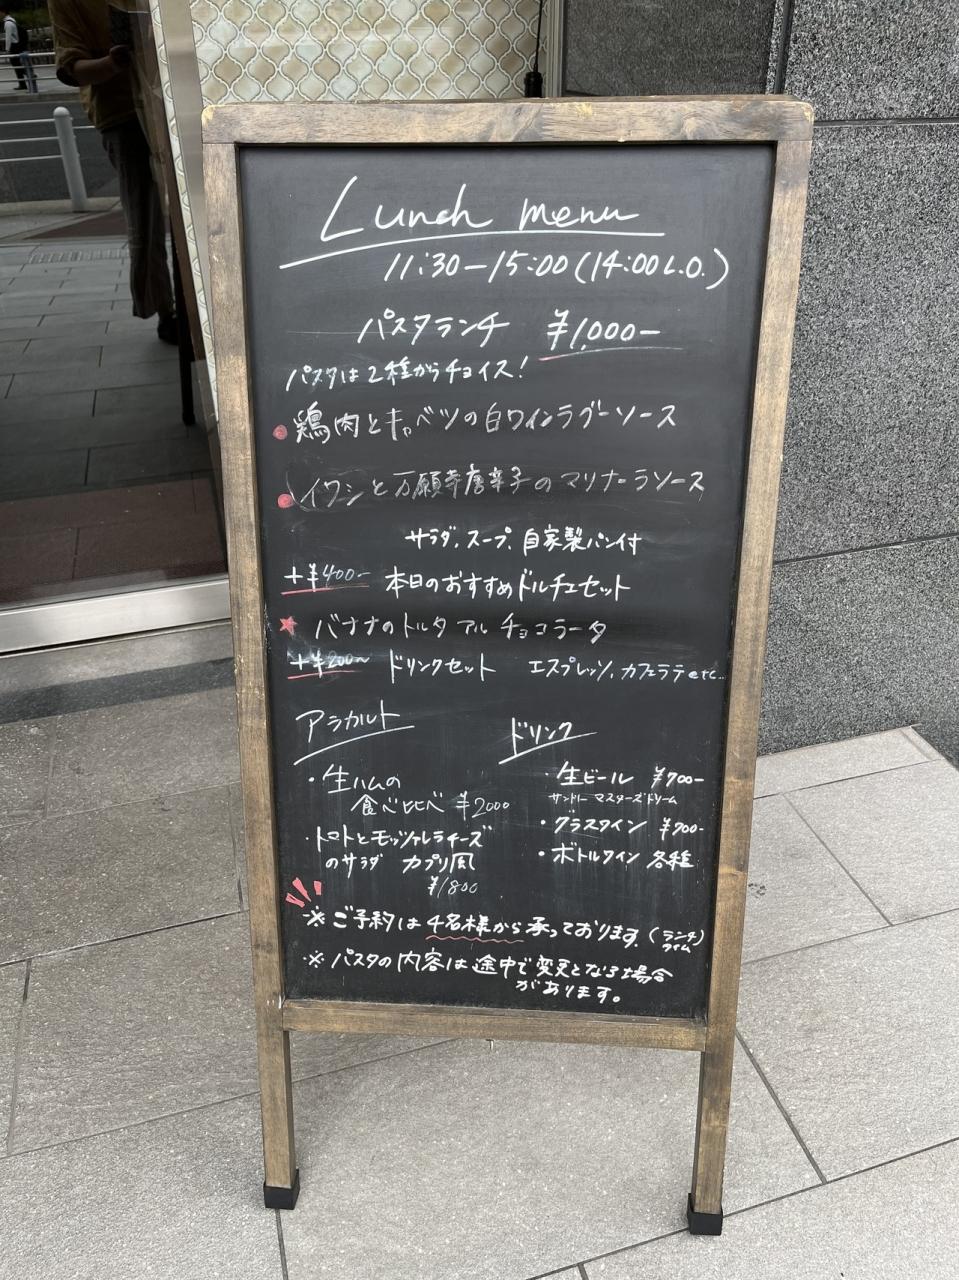 Lunch menu
11:30-15:00(14:00 L.O.)
パスタランチ ¥1,000-
パスタは2種からチョイス!
鶏肉とキャベツの白ワインラグーソース
イワシと万願寺唐辛子のマリナーラソース
サラダ、スープ、自家製パン付
+¥400- 本日のおすすめドルチェセット
★ バナナのトルタ アル チョコラータ
+¥200~ ドリンクセット エスプレッソ、カフェラテetc..
アラカルト
・生ハムの
食べ比べ ¥2000
・トマトとモッツァレラチーズ
のサラダ カプリ風
¥1800
ドリンク
・生ビール ¥700-
サントリー マスターズドリーム
・グラスワイン ¥700-
・ボトルワイン 各種
※ご予約は4名様から承っております。(ランチタイム)
※パスタの内容は途中で変更となる場合
があります。